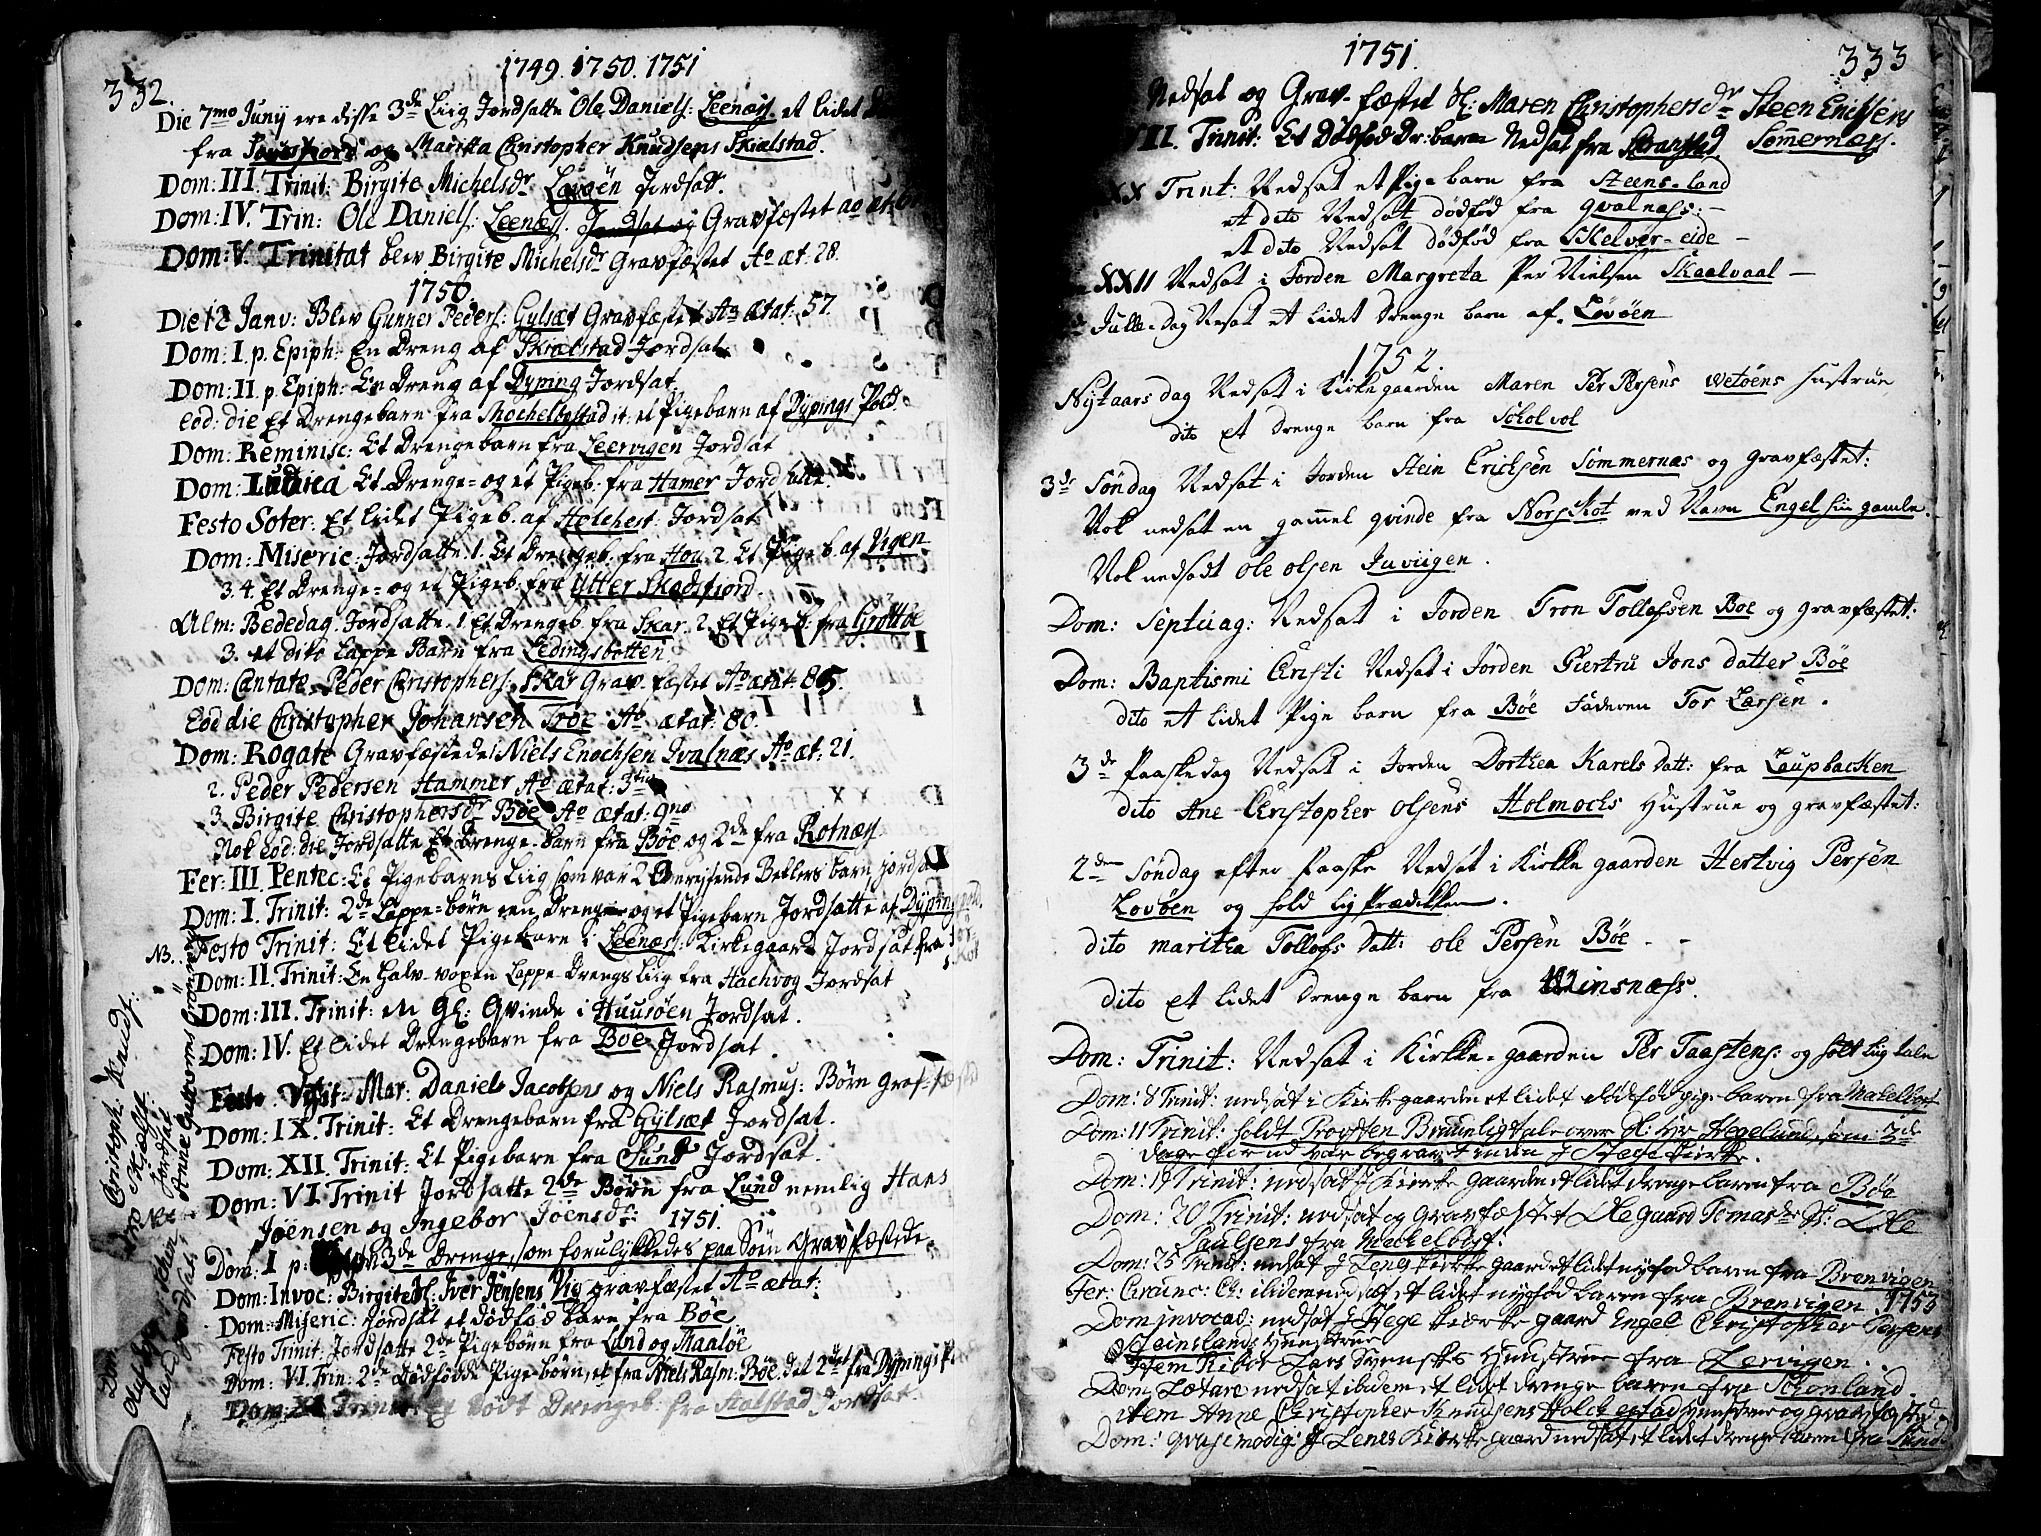 332.
1749. 1750. 1751
Die 7mo Junij ere disse 3de Liig Jordsatte Ole Daniels: Leenæs. et lidet
fra og Maritta Christopher Knudsens Skialstad.
Dom: III. Trinit: Birgite Michelsdr Løvøen Jordsatt.
Dom: IV. Trin: Ole Daniels: Leenæs. Jordsat og Gravfæstet ao æt:
Dom: V. Trinitat blev Birgite Michelsdr Gravfæstet Ao æt: 28.
1750.
Die 12 Janv: Blev Gunner Peders: Gylsæt Gravfæstet Ao ætat: 57.
Dom: I. p. Epiph: En Dreng af Skialstad Jordsat.
Dom: II p. Epiph: En Dreng af Dyping Jordsat.
Eod: die Et Drengebarn fra Mochelbostad it: et Pigebarn af Dypings Pold.
Dom: Reminisc: Et Drengebarn fra Leervigen Jordsat
Dom: Judica Et Drenge= og et Pigeb: fra Hamer Jordsatte.
Festo Soter: Et lidet Pigeb. af Holchest: Jordsat
Dom: Miseric: Jordsatte. 1. Et Drengeb. fra Hou. 2. Et Pigeb. af Vigen
3. 4. Et Drenge= og et Pigeb. fra Ytter Skodsfiord.
Alm: Bededag. Jordsatte. 1 Et Drengeb fra Skar. 2. Et Pigeb: fra Grøttøe
3. et dito Lappe Barn fra Ledingsbotten.
Dom: Cantate. Peder Christophers: Skar Grav. fæstet Ao ætat: 85.
Eod die Christopher Johansen Trøe. Ao ætat: 80.
Dom: Rogate Gravfæstede: Niels Enochsen Qvalnæs Ao æt: 21.
2. Peder Pedersen Hammer Ao ætat: 3tio
3. Birgite Christophersdr Bøe Ao ætat: 9no
Nok Eod: die Jordsatte Et Drenge-barn fra Bøe og 2de fra Rotnæs
Fer: III. Pentec: Et Pigebarns Liig som var 2 Omreysende Betlers barn jordsat
Dom: I. Trinit: 2de Lappe=børn en Drenge og et Pigebarn Jordsatte af Dypingpold.
NB. Festo Trinit: Et lidet Pigebarn i Leenæs: Kirkegaard Jordsat fra
Dom: II. Trinit: En halv voxen Lappe Drengs Liig fra Hachvog Jordsat
Dom: III. Trinit: en Gl: Qvinde i Huusøen Jordsat.
Dom: IV. Et lidet Drengebarn fra Bøe Jordsat.
Festo Visit: Mar: Daniels Jacobsens og Niels Rasmus: Børn Graf=fæst
Dom: IX. Trinit: Et Drengebarn fra Gylsæt Jordsat.
Dom: XII. Trinit: Et Pigebarn fra Sund Jordsat.
Dom: VI. Trinit Jordsatte 2de Børn fra Lund nemlig Hans
Joensen og Ingebor Joensdr: 1751.
Dom: I p: 3de Drenge, som forulykkedes paa Søen Gravfæstede.
Dom: Invoc: Birgite Sl: Iver Jensens Vig gravfæstet Ao ætat:
Dom: Miseric: Jordsat et dødfød barn fra Bøe
Festo Trinit: Jordsatte 2de Pigebørn fra Lund og Maaløe
Dom: VI. Trin: 2de dødfødde Pige-børn, et fra Niels Rasm: Bøe. det 2det fra Dypings P.
Dom: XI Trinit: Et Drengeb: fra Aalstad Jordsat.
333
1751.
Nedsat og Grav-fæstet Sl: Maren Christophersdr Steen Erichsens
III. Trinit: Et dødfød Dr: barn Nedsat fra Sommernæs.
XX Trinit: Nedsat et Pige barn fra Steens-land
et dito Nedsat dødfød fra qvalnæss: -
et dito Nedsat dødfød fra Skelver-eide -
XXII Nedsat i Jorden Margreta Per Nielsen Skaalvaal -
Julle-Dag Nesat et lidet Drenge barn af Løvøen
1752.
Nytaars dag Nedsat i Kirkegaarden Maren Per Persens wetøens hustrue
dito et Drenge barn fra Skolvol
3de Søndag Nedsat i Jorden Stein Erichsen Sommernæs og gravfæstet:
Nok nedsat en gammel qvinde fra Norskot ved Navn Engel hin gamle.
Nok nedsadt ole olsen Juviigen.
Dom: Septuag: Nedsat i Jorden Tron Tollefsen Boe og gravfæstet:
Dom: Baptismi Christi Nedsat i Jorden Giertru Jons datter Bøe
dito et lidet Pige barn fra Bøe Faderen Tor Larsen.
3de Paaskedag Nedsat i Jorden Dorthea Karels datt: fra Laupbacken
dito Ane Christopher olsens Holmochs Hustrue og gravfæstet:
2den Søndag efter Paaske Nedsat i Kirkke gaarden Hertvig Persen
Lovøen og hold lig Prædikken.
dito maritha Tollefs datt: ole Persen Bøe - -
dito et lidet Drenge barn fra Winsnæss.
Dom: Trinit: Nedsat i Kirkke-gaarden Per Taastens: og holt Liig tale
Dom: 8 Trinit: nedsat i Kirke gaarden et lidet dødfød pige baren fra Makelbost
Dom: 11 Trinit: holdt Provsten Bruun Ligtale over Sl: Hr Hegelund, som 3de
dage forud var begravet inden i Stege Kircke.
Dom: 19 Trinit: nedsatt i Kircke gaarden et lidet drenge baren fra Bøe
Dom: 20 Trinit: nedsat og gravfæstet Olegaard Tomasdr Sl: Ole
Paulsens fra Mechelbost.
Dom: 25 Trinit: nedsat i Lenes Kircke gaard et lidet nyfød baren fra Brenvigen
Fer: Circumc: Ch: ibidem nedsat et lidet nyfød baren fra Brenvigen 1753
Dom invocav: nedsat i Stege Kircke gaard Engel Christopher Persens
Steinslands Hunstrue
Item Lars Svenskes Hunstrue fra Lervigen.
Dom Lætare nedsat ibidem et lidet drenge baren fra Schonland.
item Anne Christopher Knudsens Holckestad Hunstrue og gravfæsted
Dom: qvasimodog: i Lenes Kircke gaard nedsat et lidet drenge baren fra Sund